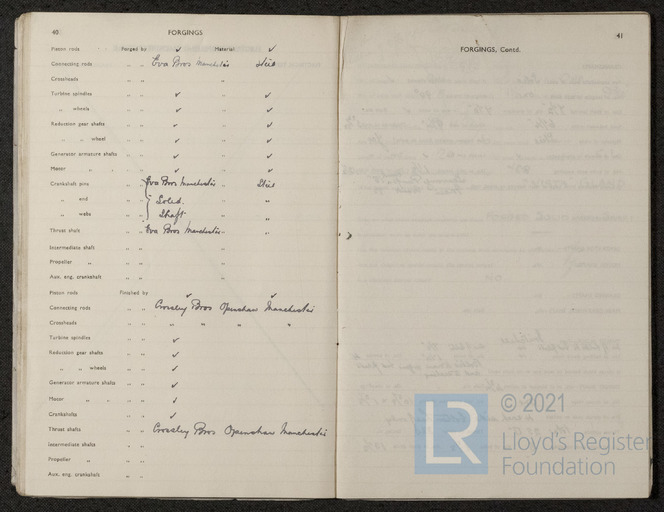 40
FORGINGS
Piston rods Forged by ✓ Material ✓
Connecting rods " " Eva Bros Manchester " Steel
Crossheads " " "
Turbine spindles " " ✓ " ✓
" wheels " " ✓ " ✓
Reduction gear shafts " " ✓ " ✓
" " wheel " " ✓ " ✓
Generator armature shafts " " ✓ " ✓
Motor " " " " ✓ " ✓
Crankshaft pins " " Eva Bros Manchester " Steel
" end " " } Solid " "
" webs " " } Shaft " "
Thrust shaft " " Eva Bros Manchester " "
Intermediate shaft " " "
Propeller " " " "
Aux. eng. crankshaft " " "
Piston rods Finished by ✓ ✓
Connecting rods " " Crossley Bros Openshaw Manchester
Crossheads " " " " " "
Turbine spindles " " ✓
Reduction gear shafts " " ✓
" " wheels " " ✓
Generator armature shafts " " ✓
Motor " " " " ✓
Crankshafts " " ✓
Thrust shafts " " Crossley Bros Openshaw Manchester
Intermediate shafts " "
Propeller " " "
Aux. eng. crankshaft " "
41
FORGINGS, Contd.
LR
© 2021
Lloyd's Register
Foundation